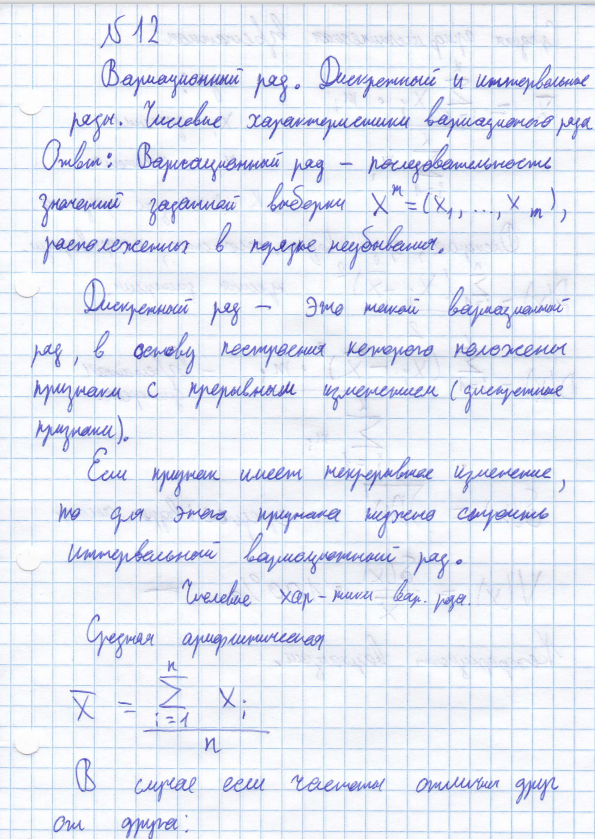 №12
Вариационный ряд. Дискретный и интервальные
ряды. Числовые характеристики вариационого ряда
Ответ: Вариационный ряд – последовательность
значений заданной выборки X^m = (x_1, ..., x_m),
расположенных в порядке неубывания.
Дискретный ряд – это такой вариационный
ряд, в основу построения которого положены
признаки с прерывным изменением (дискретные
признаки).
Если признак имеет непрерывное изменение,
то для этого признака нужно строить
интервальный вариационный ряд.
Числовые хар-тики вар. ряда.
Средняя арифметическая
X̄ = ∑_{i=1}^{n} x_i / n
В случае если частоты отличны друг
от друга: